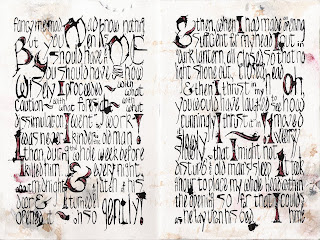 fancy me mad. Mad know nothing
But you Men ME
You should have how
wisely I proceeded with what
caution with what fore with what
dissimulation I went to work! I
was never kinder old man
than during the whole week before
killed him & every night
about midnight I of his
door & I turned
opened it oh so gently!
& then, when I had made an opening
sufficient for my head I put in
dark lantern all closed so that no
light shone out, closed,
& then I thrust in my Oh,
you would have laughed to see how
cunningly I thrust it in I moved
slowly very
that I might not
disturb old man's sleep I took
an hour to place my whole head within
the opening so far that I could
as he lay upon his bed